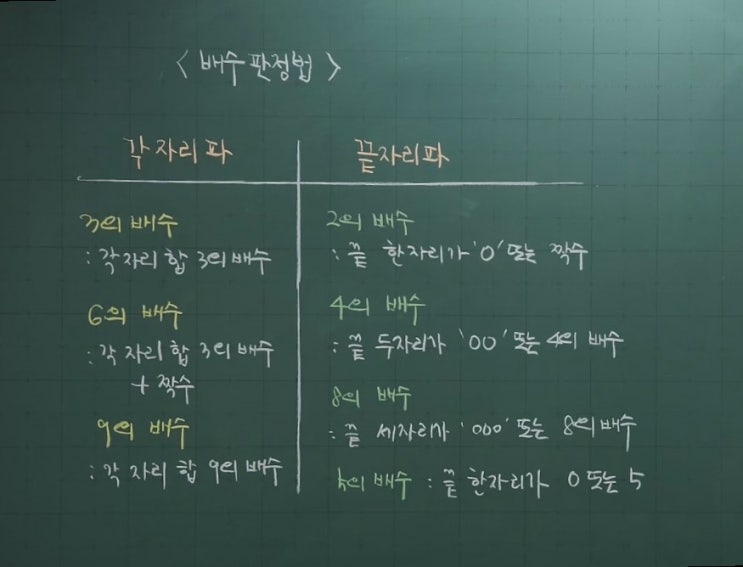 < 배수판정법 >
각자리파
끝자리파
3의 배수
: 각자리 합 3의배수
6의 배수
: 각자리합 3의배수
+ 짝수
9의 배수
: 각자리합 9의배수
2의 배수
: 끝 한자리가 '0' 또는 짝수
4의 배수
: 끝 두자리가 '00' 또는 4의 배수
8의 배수
: 끝 세자리가 '000' 또는 8의배수
5의 배수 : 끝 한자리가 0 또는 5